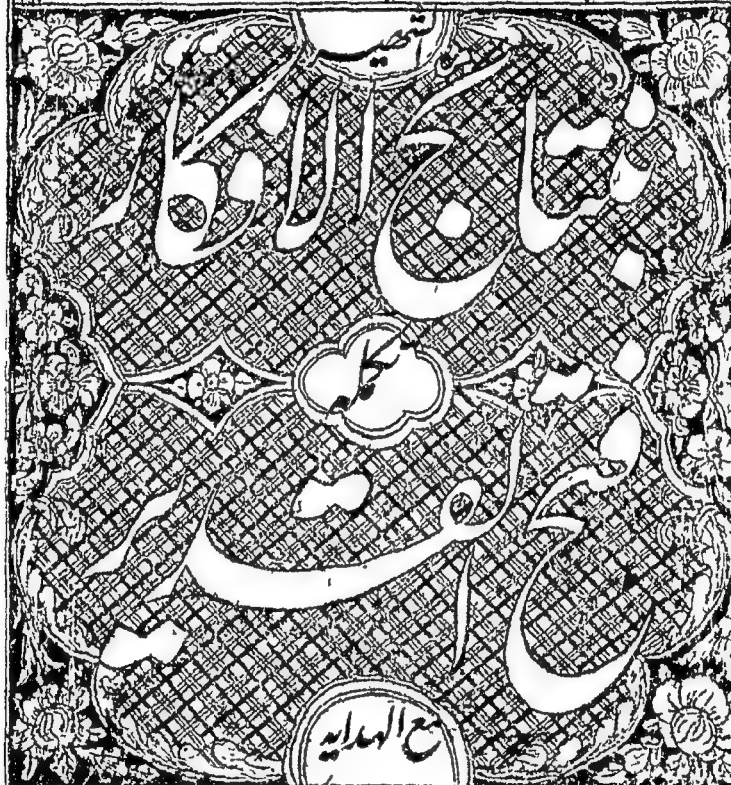 نتائج الافكار
تكمله
فتح القدير
مع الهدايه